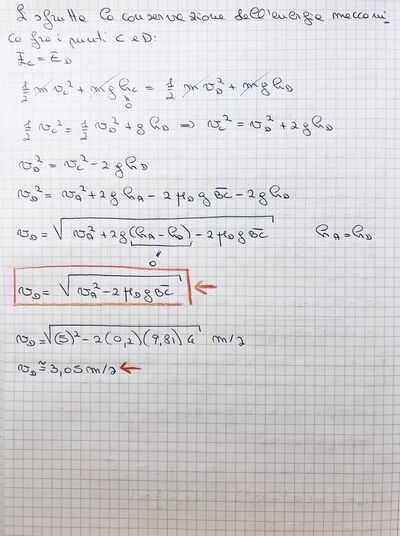 Si sfrutta la conservazione dell'energia meccani-
ca fra i punti C e D:
E_C = E_D
1/2 m v_C² + m g h_C = 1/2 m v_D² + m g h_D
0
1/2 v_C² = 1/2 v_D² + g h_D ⇒ v_C² = v_D² + 2 g h_D
v_D² = v_C² - 2 g h_D
v_D² = v_A² + 2 g h_A - 2 μ_D g BC - 2 g h_D
v_D = √(v_A² + 2 g (h_A - h_D) - 2 μ_D g BC) h_A = h_D
0
v_D = √(v_A² - 2 μ_D g BC) ←
v_D = √((5)² - 2 (0,2) (9,81) 4) m/s
v_D ≅ 3,05 m/s ←